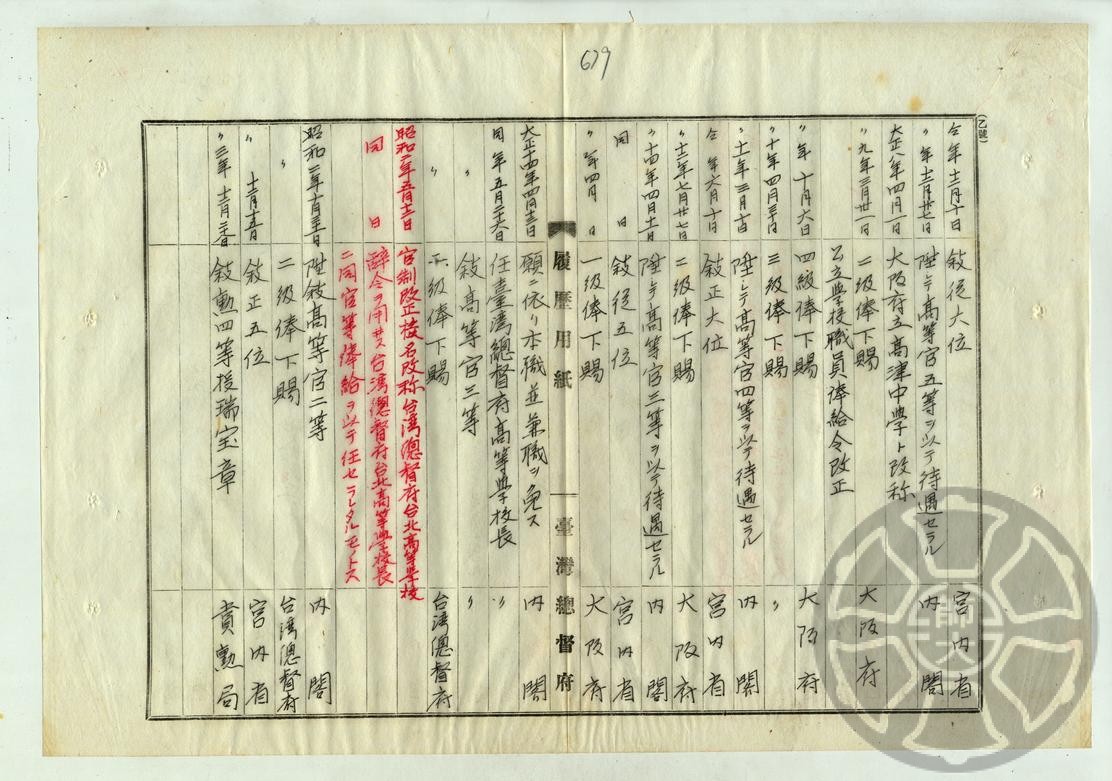 679
(乙號)
仝年十二月十日 敍從六位 宮内省
〃年十二月廿七日 陞シテ高等官五等ヲ以テ待遇セラル 内閣
大正八年四月一日 大阪府立高津中學ト改称
〃九年三月廿一日 二級俸下賜 大阪府
公立學校職員俸給令改正
〃年十月六日 四級俸下賜 大阪府
〃十年四月三十日 三級俸下賜 〃
〃十一年三月十日 陞シテ高等官四等ヲ以テ待遇セラル 内閣
仝年六月十日 敍正六位 宮内省
〃十二年七月廿七日 二級俸下賜 大阪府
〃十四年四月十一日 陞シテ高等官三等ヲ以テ待遇セラル 内閣
同日 敍従五位 宮内省
〃年四月 日 一級俸下賜 大阪府
履歷用紙 臺灣總督府
大正十四年四月十三日 願ニ依リ本職並兼職ヲ免ス 内閣
同年五月二十六日 任臺湾總督府高等學校長 〃
〃 敍高等官三等 〃
〃 級俸下賜 台湾總督府
昭和二年五月十三日 官制改正校名改称台湾總督府台北高等學校
同日 辭令ヲ用井ス台湾總督府台北高等學校長
ニ同官等俸給ヲ以テ任セラレタルモノトス
昭和二年十月三十一日 陞敍高等官二等 内閣
〃 二級俸下賜 台湾總督府
〃 十二月十五日 敍正五位 宮内省
〃三年十二月二十八日 敍勲四等授瑞宝章 賞勲局